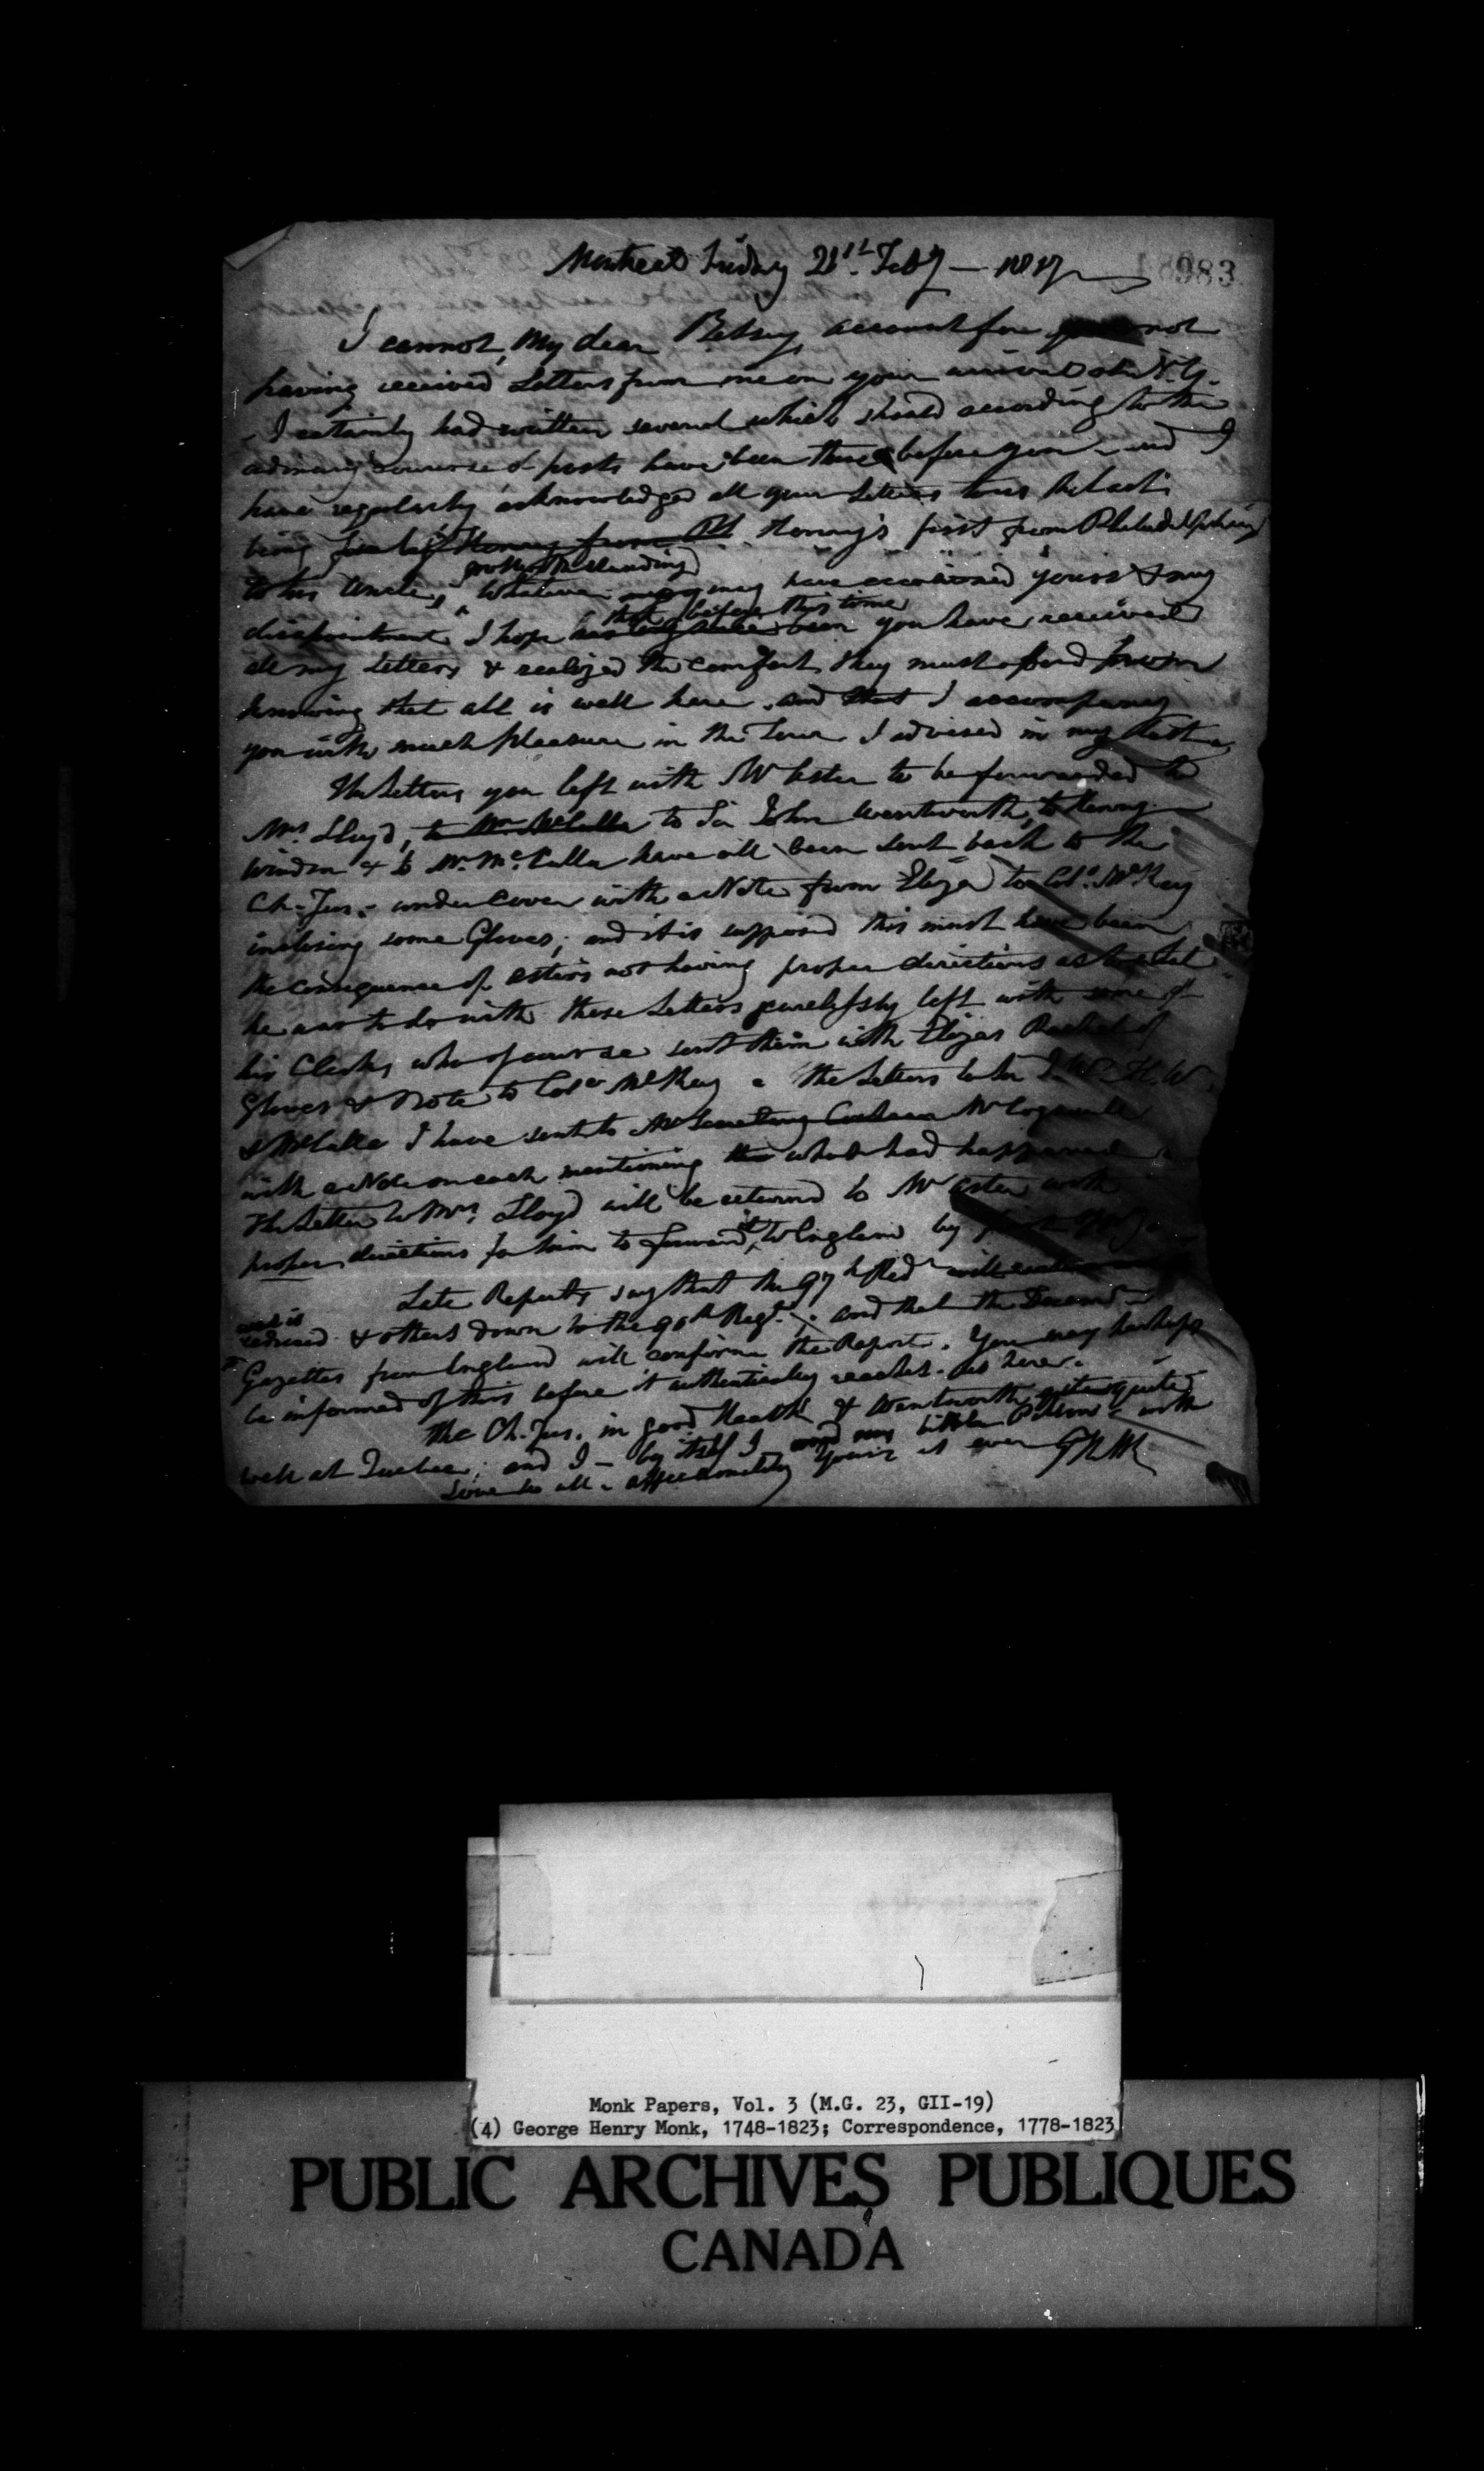 Montreal Friday 21st. Feby — 1817
18983
I cannot, My dear Betsey, account for your not
having received Letters from me on your arrival at N.Y.
I certainly had written several which should according to the
ordinary course of posts have been there before you - and I
have regularly acknowledged all your Letters to us the last
being Henry from Ph Henry's first from Philadelphia
notwithstanding
to his Uncle, Whatever may have occasioned yours & my
that before this time
disappointment I hope has long since been you have received
all my Letters & realized the comfort they must afford from
knowing that all is well here, and that I accompany
you with much pleasure in the Tour I advised in my last
The Letters you left with Mr Astor to be forwarded to
Mrs. Lloyd, to Mr. McCulla to Sir John Wentworth, to Henry
Windsor & to Mr. McCulla have all been sent back to the
Ch. Jus. - under cover with a Note from Eliza to Col. McKay
inclosing some Gloves; and it is supposed this must have been
the consequence of Astor's not having proper directions as to what
he was to do with these Letters carelessly left with some of
his Clerks, who of course sent them with Elizas Packet of
Gloves & Note to Col. McKay - The Letters to Sir J. W. H. W.
& McCulla I have sent to Mr Secretary Cochran Mr Cogswell
with a Note on each mentioning the what had happened
The Letter to Mrs. Lloyd will be returned to Mr Astor with
it
proper directions for him to forward to England by
Late Reports say that the 97th Red
and is
reduced & others down to the 90th Regt.; and that the
Gazettes from England will confirm the Report. You may perhaps
be informed of this before it authentically reaches us here.
The Ch. Jus. in good Health & Wentworth quite
well at Quebec; and I - by itself I and my little with
Love to all - affectionately Yours as ever GHM
Monk Papers, Vol. 3 (M.G. 23, GII-19)
(4) George Henry Monk, 1748-1823; Correspondence, 1778-1823
PUBLIC ARCHIVES PUBLIQUES
CANADA